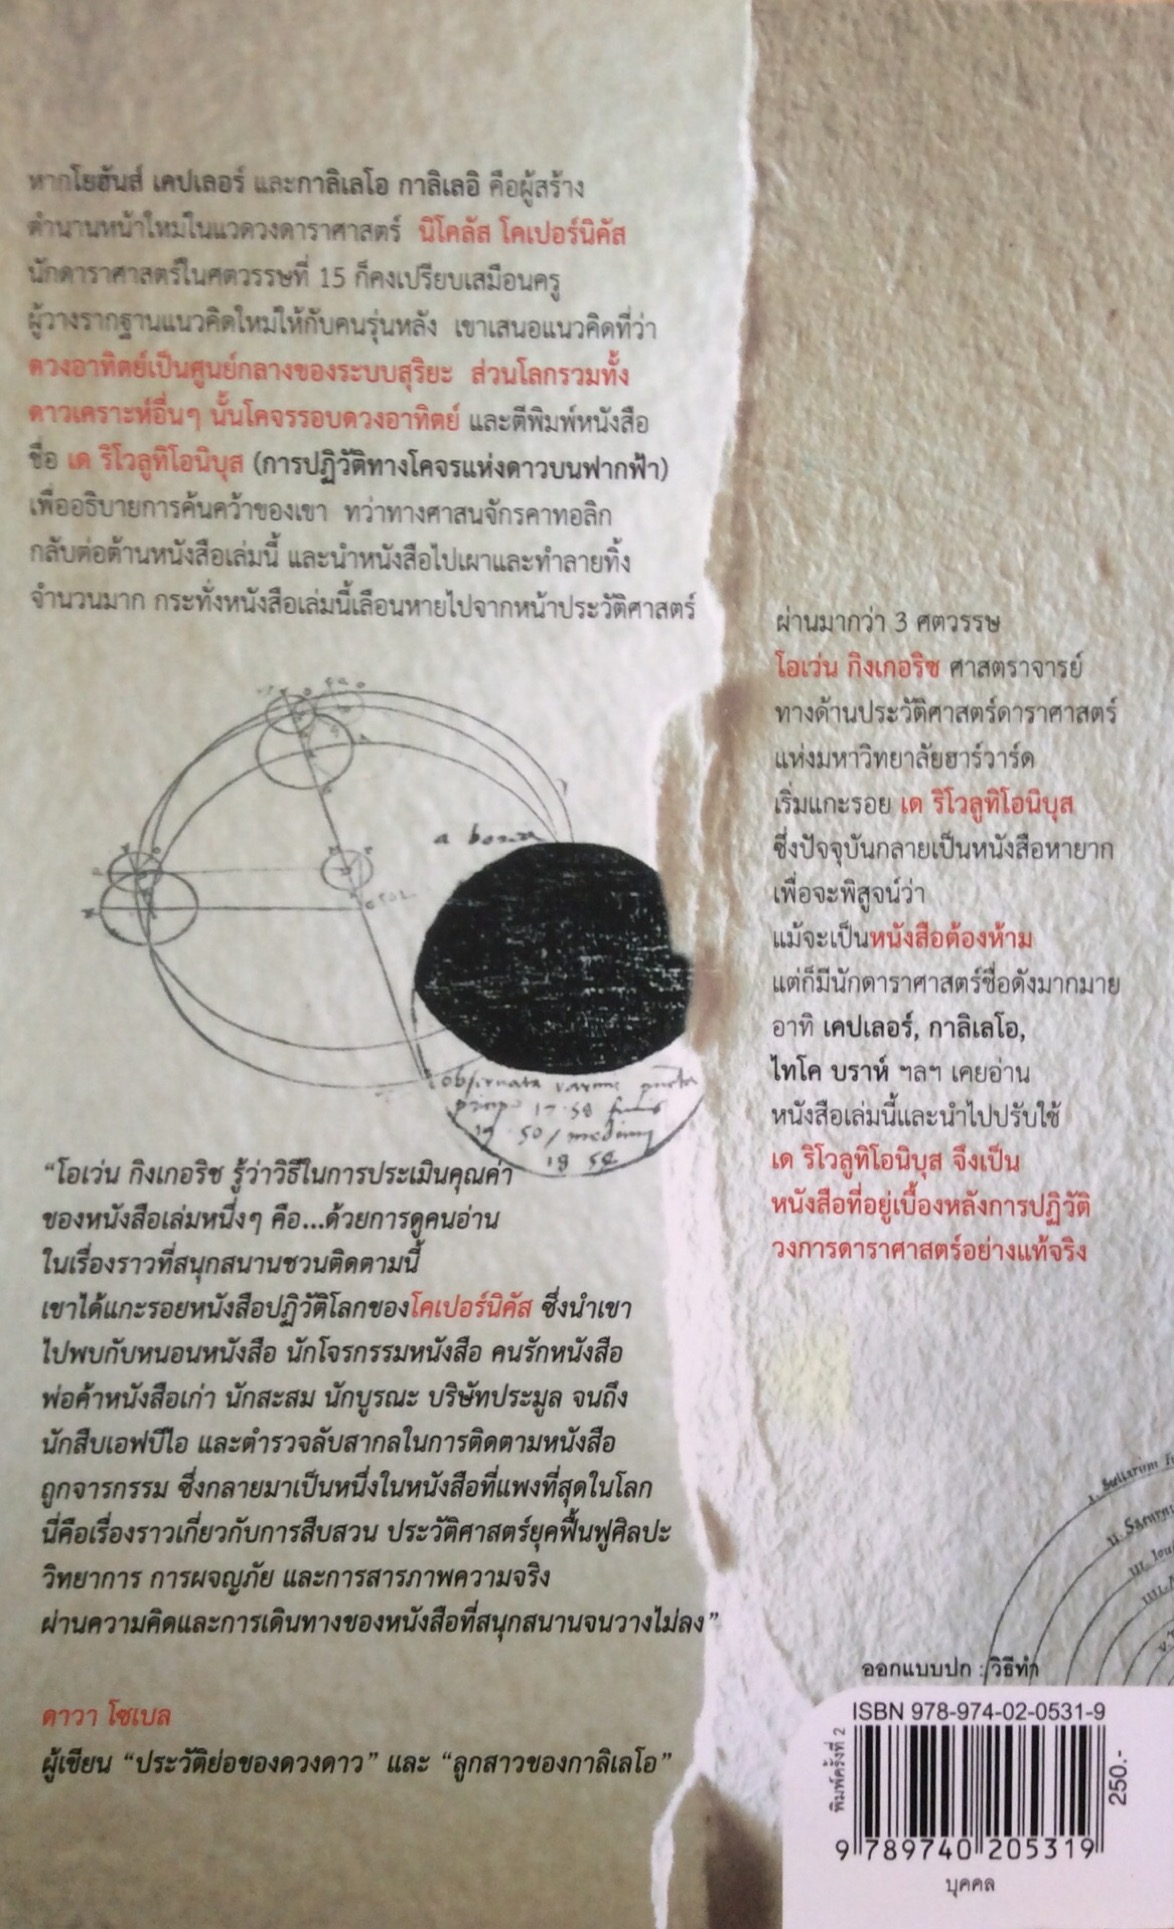 หากโยฮันส์ เคปเลอร์ และกาลิเลโอ กาลิเลอิ คือผู้สร้าง
ตำนานหน้าใหม่ในแวดวงดาราศาสตร์ นิโคลัส โคเปอร์นิคัส
นักดาราศาสตร์ในศตวรรษที่ 15 ก็คงเปรียบเสมือนครู
ผู้วางรากฐานแนวคิดใหม่ให้กับคนรุ่นหลัง เขาเสนอแนวคิดที่ว่า
ดวงอาทิตย์เป็นศูนย์กลางของระบบสุริยะ ส่วนโลกรวมทั้ง
ดาวเคราะห์อื่นๆ นั้นโคจรรอบดวงอาทิตย์ และตีพิมพ์หนังสือ
ชื่อ เด ริโวลูทิโอนิบุส (การปฏิวัติทางโคจรแห่งดาวบนฟากฟ้า)
เพื่ออธิบายการค้นคว้าของเขา ทว่าทางศาสนจักรคาทอลิก
กลับต่อต้านหนังสือเล่มนี้ และนำหนังสือไปเผาและทำลายทิ้ง
จำนวนมาก กระทั่งหนังสือเล่มนี้เลือนหายไปจากหน้าประวัติศาสตร์
ผ่านมากว่า 3 ศตวรรษ
โอเว่น กิงเกอริช ศาสตราจารย์
ทางด้านประวัติศาสตร์ดาราศาสตร์
แห่งมหาวิทยาลัยฮาร์วาร์ด
เริ่มแกะรอย เด ริโวลูทิโอนิบุส
ซึ่งปัจจุบันกลายเป็นหนังสือหายาก
เพื่อจะพิสูจน์ว่า
แม้จะเป็นหนังสือต้องห้าม
แต่ก็มีนักดาราศาสตร์ชื่อดังมากมาย
อาทิ เคปเลอร์, กาลิเลโอ,
ไทโค บราห์ ฯลฯ เคยอ่าน
หนังสือเล่มนี้และนำไปปรับใช้
เด ริโวลูทิโอนิบุส จึงเป็น
หนังสือที่อยู่เบื้องหลังการปฏิวัติ
วงการดาราศาสตร์อย่างแท้จริง
“โอเว่น กิงเกอริช รู้ว่าวิธีในการประเมินคุณค่า
ของหนังสือเล่มหนึ่งๆ คือ...ด้วยการดูคนอ่าน
ในเรื่องราวที่สนุกสนานชวนติดตามนี้
เขาได้แกะรอยหนังสือปฏิวัติโลกของโคเปอร์นิคัส ซึ่งนำเขา
ไปพบกับหนอนหนังสือ นักโจรกรรมหนังสือ คนรักหนังสือ
พ่อค้าหนังสือเก่า นักสะสม นักบูรณะ บริษัทประมูล จนถึง
นักสืบเอฟบีไอ และตำรวจลับสากลในการติดตามหนังสือ
ถูกจารกรรม ซึ่งกลายมาเป็นหนึ่งในหนังสือที่แพงที่สุดในโลก
นี่คือเรื่องราวเกี่ยวกับการสืบสวน ประวัติศาสตร์ยุคฟื้นฟูศิลปะ
วิทยาการ การผจญภัย และการสารภาพความจริง
ผ่านความคิดและการเดินทางของหนังสือที่สนุกสนานจนวางไม่ลง”
ดาวา โซเบล
ผู้เขียน “ประวัติย่อของดวงดาว” และ “ลูกสาวของกาลิเลโอ”
ออกแบบปก : วิธีทำ
ISBN 978-974-02-0531-9
พิมพ์ครั้งที่ 2
250.-
9 789740 205319
บุคคล